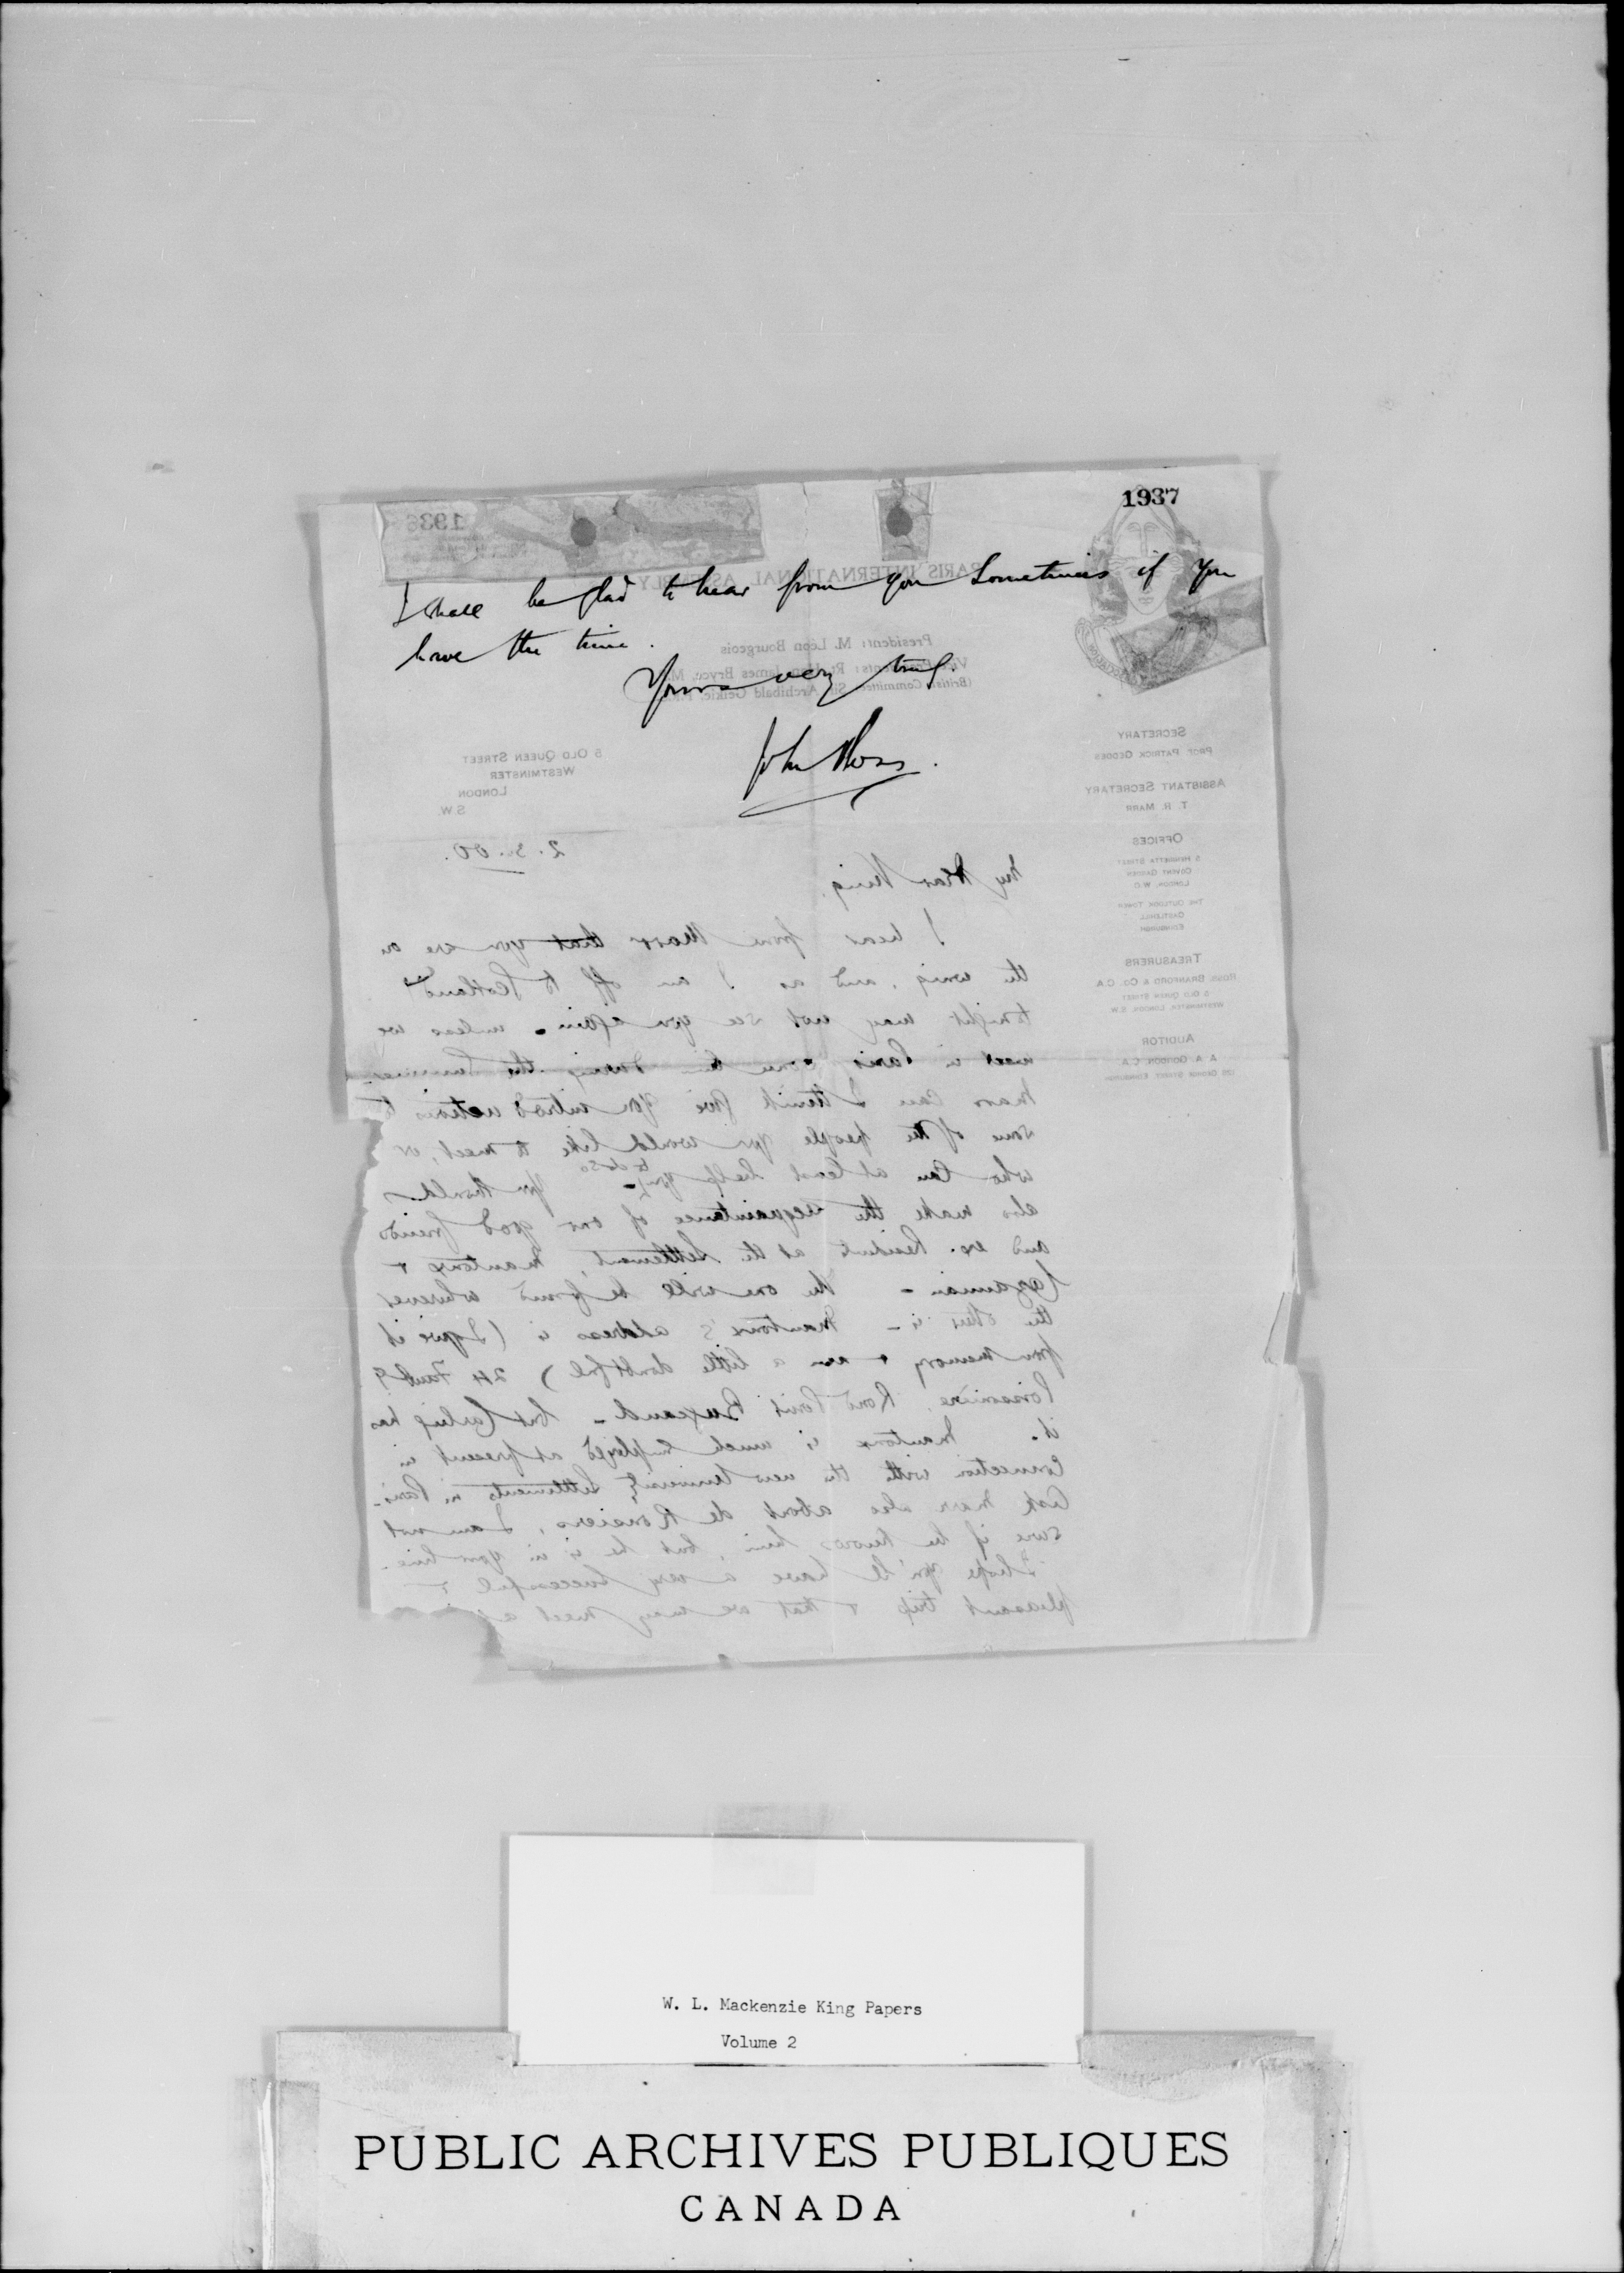 1937
1936
PARIS INTERNATIONAL ASSEMBLY
I shall be glad to hear from you sometimes if you
have the time.
Yours very truly.
John Ross.
President: M. Léon Bourgeois
Vice-Presidents: Rt. Hon. James Bryce, M.P.
(British Committee) Sir Archibald Geikie, F.R.S.
5 OLD QUEEN STREET
WESTMINSTER
LONDON
S.W.
SECRETARY
PROF PATRICK GEDDES
ASSISTANT SECRETARY
T. R. MARR
OFFICES
5 HENRIETTA STREET
COVENT GARDEN
LONDON, W.C.
THE OUTLOOK TOWER
CASTLEHILL
EDINBURGH
TREASURERS
ROSS, BRANFORD & CO. C.A.
5 OLD QUEEN STREET
WESTMINSTER, LONDON, S.W.
AUDITOR
A. A. GORDON C.A.
GEORGE STREET EDINBURGH
2.3.00.
My dear King,
I hear from Marr that you are on
the wing, and as I am off to Scotland
tonight may not see you again - unless we
meet in Paris some time during the summer.
Marr can I think give you introductions to
some of the people you would like to meet, or
who can at least help you to do so - You should
also make the acquaintance of our good friends
and ex. Residents at the Settlement, Mantoux &
Cazamian - the one will be found wherever
the other is - Mantoux's address is (I give it
from memory & am a little doubtful) 24 Faubg
Poissonière, Rond Point Bugeaud - but has
it. Mantoux is much employed at present in
connection with the new University Settlements in Paris.
Ask Marr also about de Rousiers, I am not
sure if he knows him, but he is in your line.
I hope you'll have a very successful &
pleasant trip & that we may meet
W. L. Mackenzie King Papers
Volume 2
PUBLIC ARCHIVES PUBLIQUES
CANADA